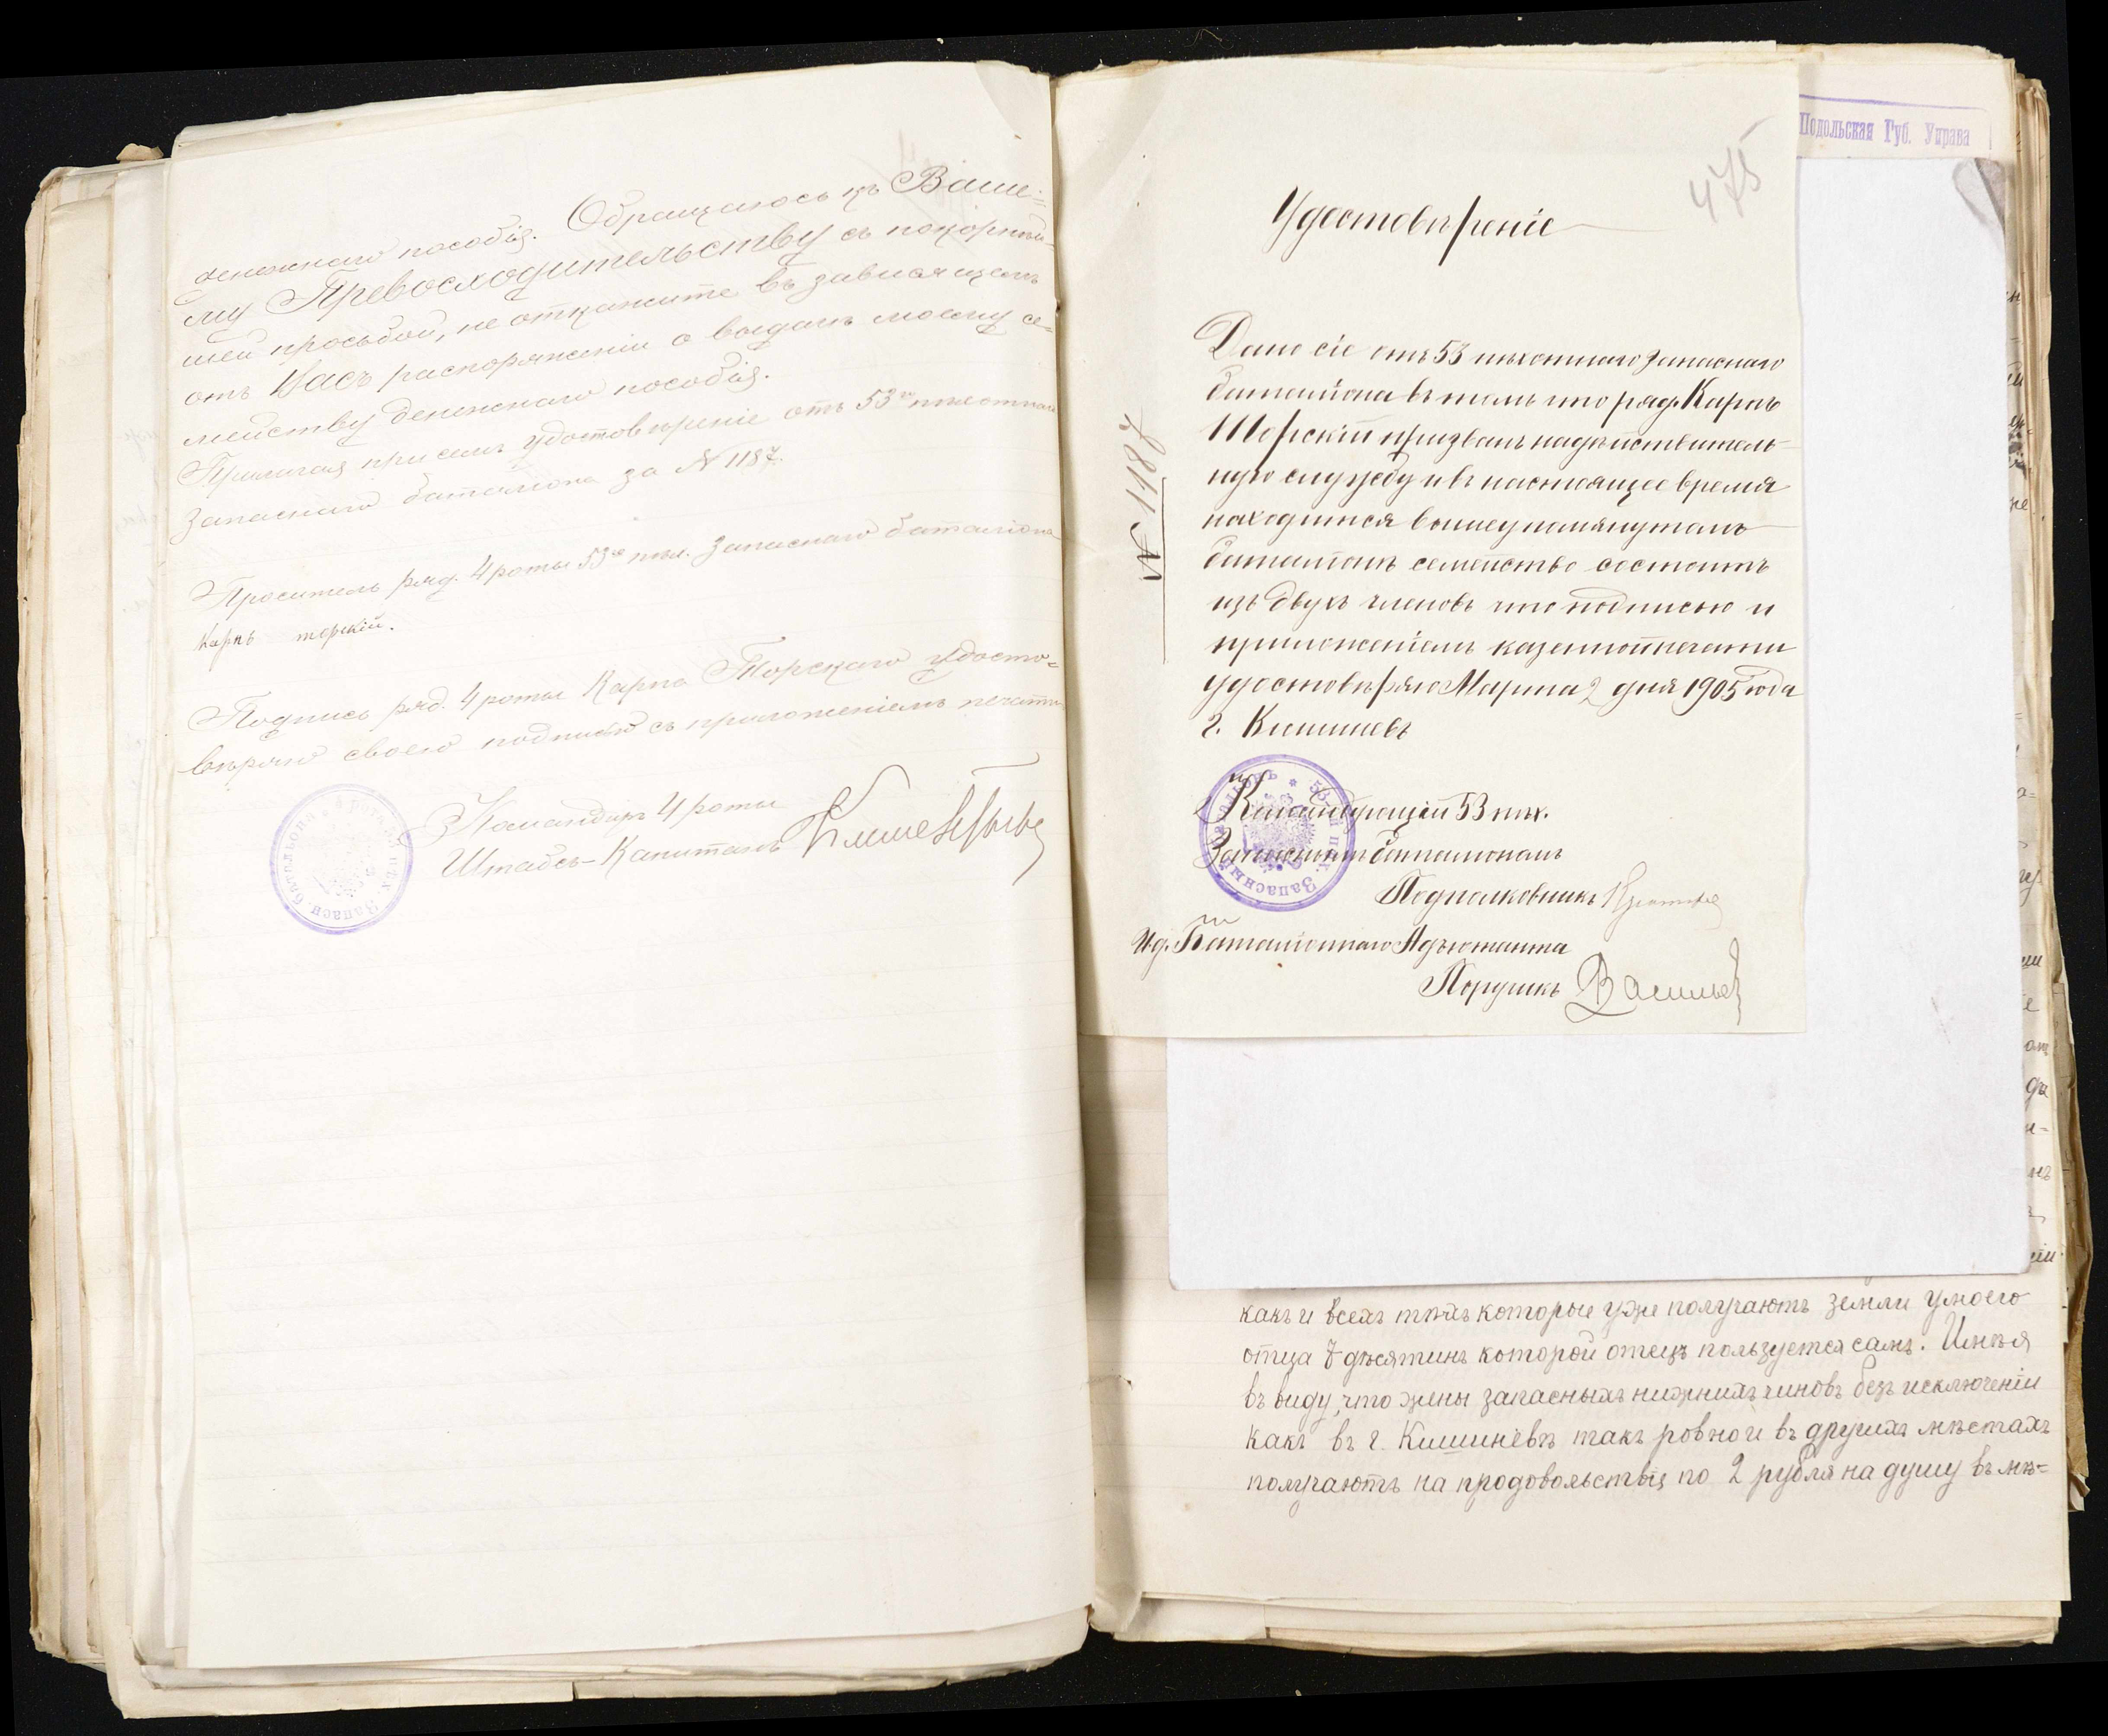 денежнаго пособія. Обращаюсь къ Ваше-
му Превосходительству съ покорнѣй-
шей просьбой, не откажите въ зависящемъ
отъ Васъ распоряженіи о выдачѣ моему се=
мейству денежнаго пособія.
Прилагая при семъ удостовѣреніе отъ 53го пѣхотнаго
Запаснаго баталіона за № 1187.
Проситель ряд. 4 роты 53го пѣх. Запаснаго баталіона
Карпъ торскій.
Подпись ряд. 4 роты Карпа Торскаго удосто=
вѣряю своею подписью съ приложеніемъ печати
Командиръ 4 роты
Штабсъ-Капитанъ
475
Удостовѣреніе
№ 1187
Дано сіе отъ 53 пѣхотнаго Запаснаго
баталіона въ томъ что ряд. Карпъ
Торскій призванъ на дѣйствитель-
ную службу и въ настоящее время
находится вышеупомянутомъ
баталіонѣ семейство состоитъ
изъ двухъ членовъ что подписью и
приложеніемъ казенной печати
удостовѣряю Марта 2 дня 1905 года
г. Кишиневъ
53-й пѣх. Запасный баталіонъ
Командующій 53 пѣх.
Запаснымъ баталіономъ
Подполковникъ
И.д. Баталіоннаго Адъютанта
Поручикъ Васильев
Подольская Губ. Управа
какъ и всехъ тѣхъ которые уже получаютъ земли у моего
отца 7 дѣсятинъ которой отецъ пользуется самъ. Имѣя
въ виду, что жены запасныхъ нижнихъ чиновъ безъ исключеніи
какъ въ г. Кишиневѣ такъ ровно и въ другихъ мѣстахъ
получаютъ на продовольствія по 2 рубля на душу въ мѣ=